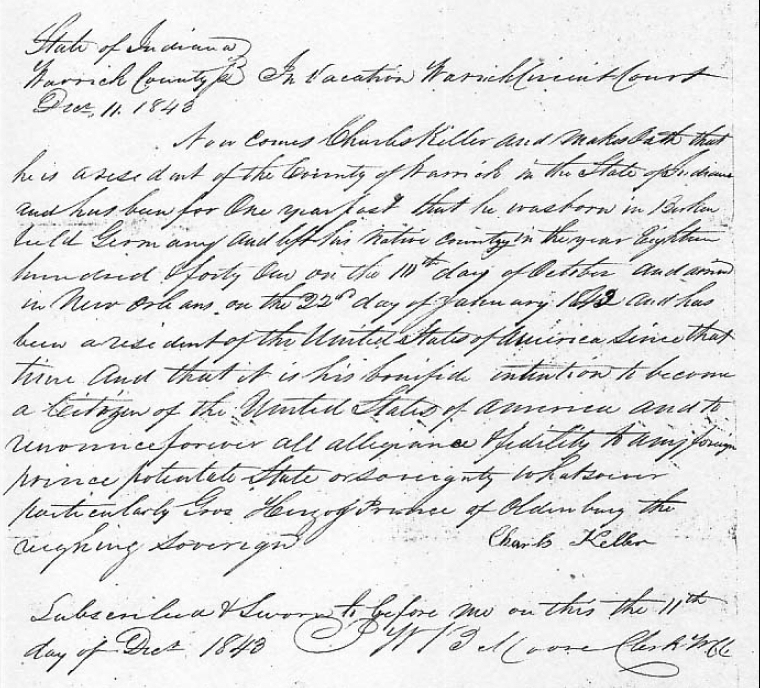 State of Indiana
Warrick County Ss In Vacation Warrick Circuit Court
Decr. 11. 1843
Now comes Charles Keller and makes Oath that
he is a resident of the County of Warrick in the State of Indiana
and has been for One year past that he was born in
Germany and left his Native Country in the year Eighteen
hundred & forty One on the 10th day of October and arrived
in New Orleans on the 22d day of January 1842 and has
been a resident of the United States of America since that
time And that it is his bonifide intention to become
a Citizen of the United States of America and to
renounce forever all allegiance & fidelity to any foreign
prince potentate State or sovereignty whatsoever
particularly Gros Herzog Province of Oldenburg the
reighning Sovereign Charls Keller
Subscribed & Sworn to before me on this the 11th
day of Decr 1843 Moore Clerk